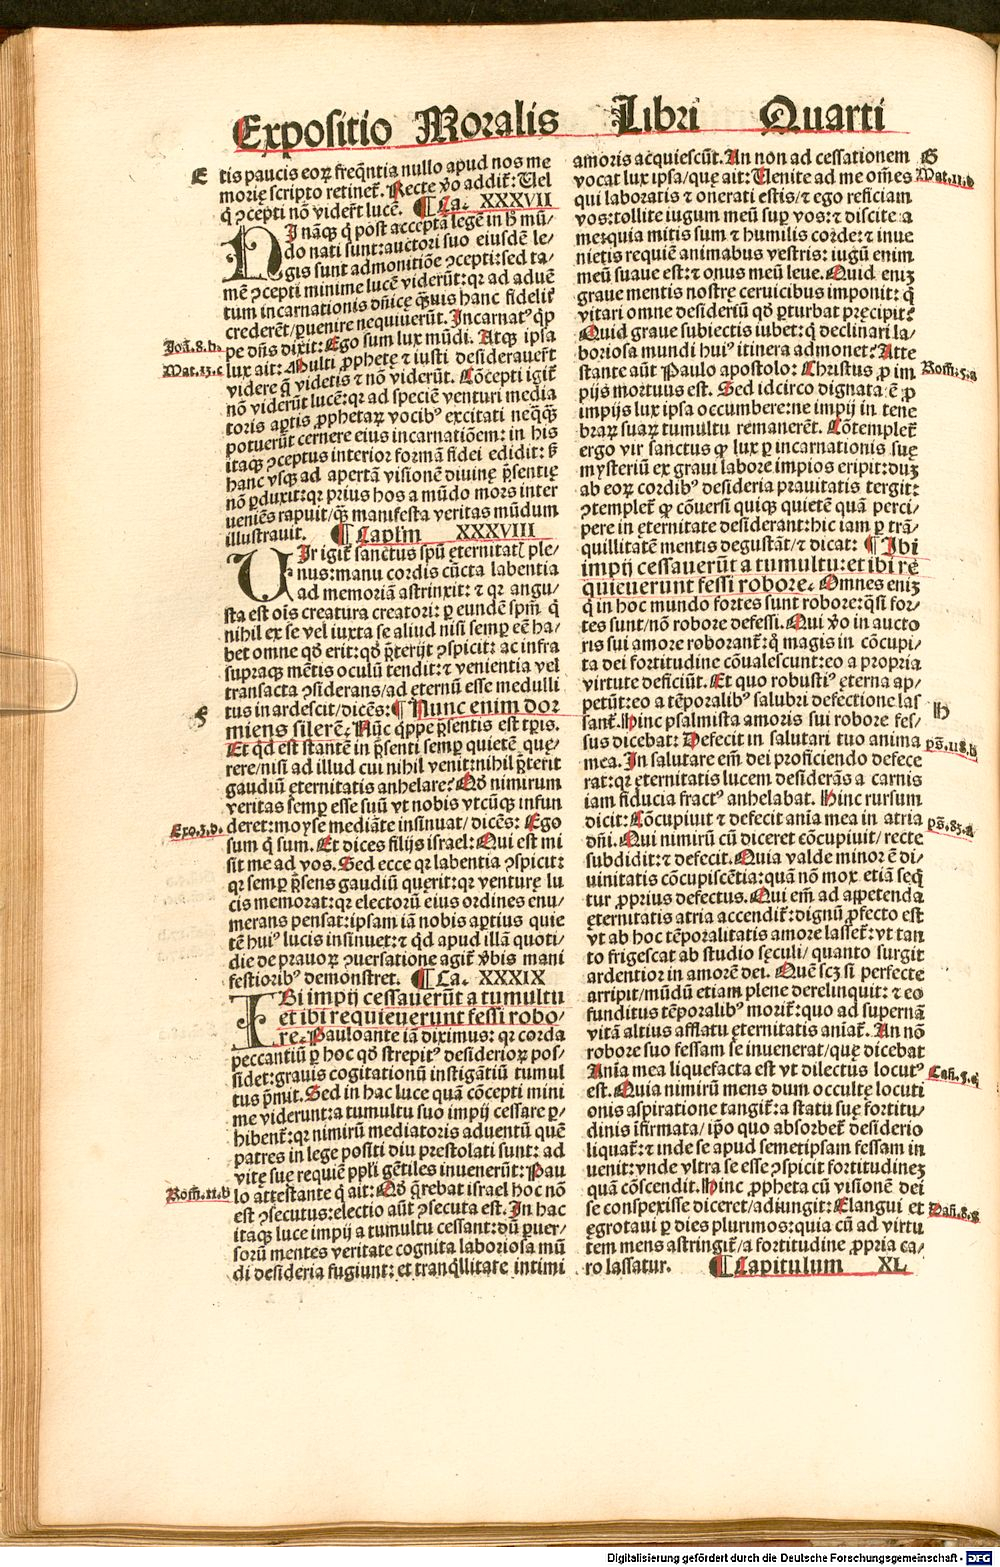 Expositio Moralis Libri Quarti
E
tis paucis eoꝝ freqñntia nullo apud nos me
morię scripto retinet̃. Recte ṽo addit̃: Uel
q̃ ꝯcepti nõ vider̃t lucẽ. ¶ Ca. XXXVII
NJ nãqꝫ q̃ post accepta legẽ in h̃ mũ/
do nati sunt: auctori suo eiusdẽ le/
gis sunt admonitiõe ꝯcepti: sed ta/
mẽ ꝯcepti minime lucẽ viderũt: qꝛ ad aduẽ
tum incarnationis dñicę q̃uis hanc fideliť
crederẽt/ ꝑuenire nequiuerũt. Incarnatꝰ q̃p
Joã. 8. b.
pe dñs dixit: Ego sum lux mũdi. Atqꝫ ipsa
Mat. 13. c
lux ait: Multi ꝓphetę ⁊ iusti desiderauer̃t
videre q̃ videtis ⁊ nõ viderũt. Cõcepti igit̃
nõ viderũt lucẽ: qꝛ ad speciẽ venturi media
toris aꝑtis ꝓphetaꝝ vocibꝰ excitati neq̃qꝫ
potuerũt cernere eius incarnatiõem: in his
itaqꝫ ꝯceptus interior formã fidei edidit: s̃
hanc vsqꝫ ad apertã visionẽ diuinę p̃sentię
nõ ꝑduxit: qꝛ prius hos a mũdo mors inter
ueniẽs rapuit/ q̃ꝫ manifesta veritas mũdum
illustrauit. ¶ Capľm XXXVIII
UJr igit̃ sanctus spũ ęternitatꝭ ple/
nus: manu cordis cũcta labentia
ad memoriã astrinxit: ⁊ qꝛ angu/
sta est oĩs creatura creatori: ꝑ eundẽ spm̃ q̃
nihil ex se vel iuxta se aliud nisi semꝑ eẽ ha/
bet omne qð erit: qð p̃terijt ꝯspicit: ac infra
supraqꝫ mẽtis oculũ tendit: ⁊ venientia vel
transacta ꝯsiderans/ ad ęternũ esse medulli
F
tus in ardescit/ dicẽs: ¶ Nunc enim dor
miens silerẽ. Nũc q̃ppe p̃sentis est tꝑis.
Et qd̃ est stantẽ in p̃senti semꝑ quietẽ quę/
rere/ nisi ad illud cui nihil venit: nihil p̃terit
gaudiũ ęternitatis anhelare? Qð nimirum
veritas semꝑ esse suũ vt nobis vtcũqꝫ infun
Exo. 3. d.
deret: moyse mediãte insinuat/ dicẽs: Ego
sum q̃ sum. Et dices filijs israel: Qui est mi
sit me ad vos. Sed ecce qꝛ labentia ꝯspicit:
qꝛ semꝑ p̃sens gaudiũ querit: qꝛ venturę lu
cis memorat: qꝛ electorũ eius ordines enu/
merans pensat: ipsam iã nobis aꝑtius quie
tẽ huiꝰ lucis insinuet: ⁊ qd̃ apud illã quoti/
die de prauoꝝ ꝯuersatione agit̃ ṽbis mani
festioribꝰ demonstret. ¶ Ca. XXXIX
IBi impij cessauerũt a tumultu
et ibi requieuerunt fessi robo/
re. Pauloante iã diximus: qꝛ corda
peccantiũ ꝑ hoc qð strepitꝰ desiderioꝝ pos/
sidet: grauis cogitationũ instigãtiũ tumul
tus p̃mit. Sed in hac luce quã cõcepti mini
me viderunt: a tumultu suo impij cessare ꝑ/
hibent̃: qꝛ nimirũ mediatoris aduentũ quẽ
patres in lege positi diu prestolati sunt: ad
vitę sue requiẽ ppľi gẽtiles inuenerũt: Pau
Rom̃. 11. b
lo attestante q̃ ait: Qð q̃rebat israel hoc nõ
est ꝯsecutus: electio aũt ꝯsecuta est. In hac
itaqꝫ luce impij a tumultu cessant: dũ ꝑuer/
sorũ mentes veritate cognita laboriosa mũ
di desideria fugiunt: et tranq̃llitate intimi
amoris acquiescũt. An non ad cessationem
G
vocat lux ipsa/ quę ait: Uenite ad me om̃es
Mat. 11. d
qui laboratis ⁊ onerati estis/ ⁊ ego reficiam
vos: tollite iugum meũ suꝑ vos: ⁊ discite a
me: quia mitis sum ⁊ humilis corde: ⁊ inue
nietis requiẽ animabus vestris: iugũ enim
meũ suaue est: ⁊ onus meũ leue. Quid enĩꝫ
graue mentis nostrę ceruicibus imponit: q̃
vitari omne desideriũ qð ꝑturbat pręcipit?
Quid graue subiectis iubet: q̃ declinari la/
boriosa mundi huiꝰ itinera admonet? Atte
stante aũt Paulo apostolo: Christus ꝓ im
Rom̃. 5. a
pijs mortuus est. Sed idcirco dignata ẽ ꝓ
impijs lux ipsa occumbere: ne impij in tene
braꝝ suaꝝ tumultu remanerẽt. Cõtemplet̃
ergo vir sanctus ꝙ lux ꝑ incarnationis suę
mysteriũ ex graui labore impios eripit: dũꝫ
ab eoꝝ cordibꝰ desideria prauitatis tergit:
ꝯtemplet̃ ꝙ cõuersi quiqꝫ quietẽ quã perci/
pere in ęternitate desiderant: hic iam ꝑ trã/
quillitatẽ mentis degustãt/ ⁊ dicat: ¶ Ibi
impij cessauerũt a tumultu: et ibi re
quieuerunt fessi robore. Omnes enĩꝫ
q̃ in hoc mundo fortes sunt robore: q̃si for/
tes sunt/ nõ robore defessi. Qui ṽo in aucto
ris sui amore roborant̃: q̃ magis in cõcupi/
ta dei fortitudine cõualescunt: eo a propria
virtute deficiũt. Et quo robustiꝰ ęterna ap/
petũt: eo a tẽporalibꝰ salubri defectione las
H
sant̃. Hinc psalmista amoris sui robore fes/
sus dicebat: Defecit in salutari tuo anima
ps̃. 118. b
mea. In salutare em̃ dei proficiendo defece
rat: qꝛ ęternitatis lucem desiderãs a carnis
iam fiducia fractꝰ anhelabat. Hinc rursum
dicit: Cõcupiuit ⁊ defecit ania mea in atria
ps̃. 83. a
dñi. Qui nimirũ cũ diceret cõcupiuit/ recte
subdidit: ⁊ defecit. Quia valde minor ẽ di/
uinitatis cõcupiscẽtia: quã nõ mox etiã seq̃
tur ꝓprius defectus. Qui em̃ ad appetenda
ęternitatis atria accendit̃: dignũ ꝓfecto est
vt ab hoc tẽporalitatis amore lasset̃: vt tan
to frigescat ab studio sęculi/ quanto surgit
ardentior in amorẽ dei. Quẽ scꝫ si perfecte
arripit/ mũdũ etiam plene derelinquit: ⁊ eo
funditus tẽporalibꝰ morit̃: quo ad supernã
vitã altius afflatu ęternitatis aniat̃. An nõ
robore suo fessam se inuenerat/ quę dicebat
Ania mea liquefacta est vt dilectus locutꝰ
Cañ. 5. c
est. Quia nimirũ mens dum occultę locuti
onis aspiratione tangit̃: a statu suę fortitu/
dinis ĩfirmata/ ip̃o quo absorbet̃ desiderio
liquat̃: ⁊ inde se apud semetipsam fessam in
uenit: vnde vltra se esse ꝯspicit fortitudinẽꝫ
quã cõscendit. Hinc ꝓpheta cũ visionẽ dei
se conspexisse diceret/ adiungit: Elangui et
Dañ. 8. g
ęgrotaui ꝑ dies plurimos: quia cũ ad virtu
tem mens astringit̃/ a fortitudine ꝓpria ca/
ro lassatur. ¶ Capitulum XL
Digitalisierung gefördert durch die Deutsche Forschungsgemeinschaft - DFG